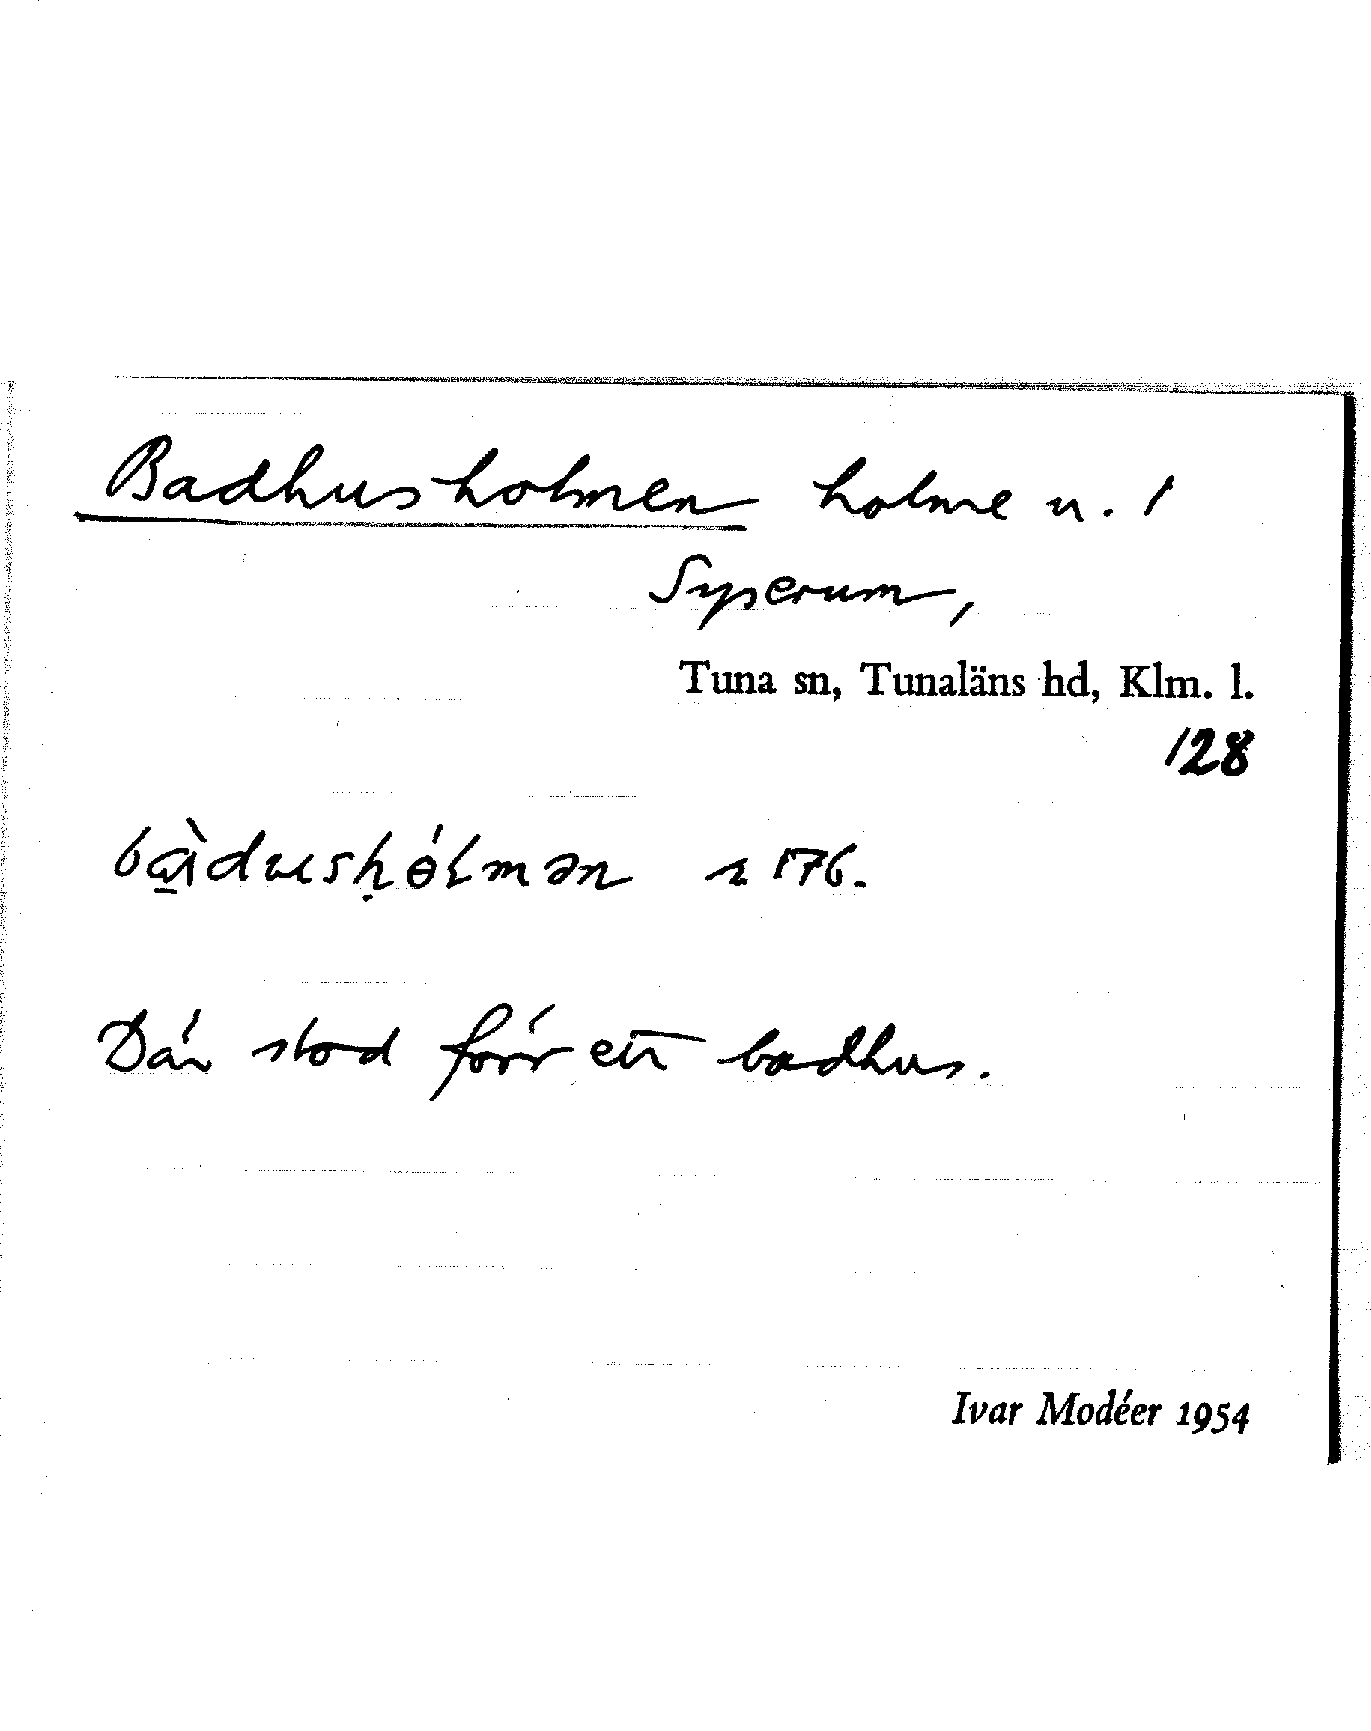 Badhusholmen holme n. 1
Syserum,
Tuna sn, Tunaläns hd, Klm. l.
128
176.
Där stod förr ett badhus.
Ivar Modéer 1954